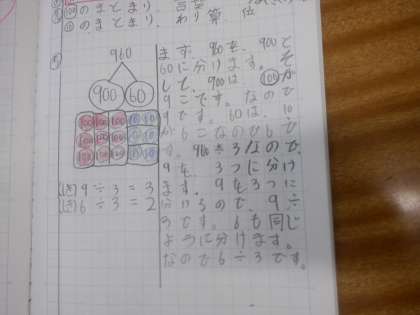 のまとまり、
のまとまり、わり算、位
960
900 60
100 100 100 10 10
100 100 100 10 10
100 100 100 10 10
(しき) 9÷3=3
(しき) 6÷3=2
ます。960を、900と
60に分けます。そ
して、900は、100が
9こです。なので
9です。60は、10
が6こなので6で
す。960÷3なので、
9を、3つに分け
ます。9を3つに
分けるので、9÷
3です。6も同じ
ように分けます。
なので6÷3です。